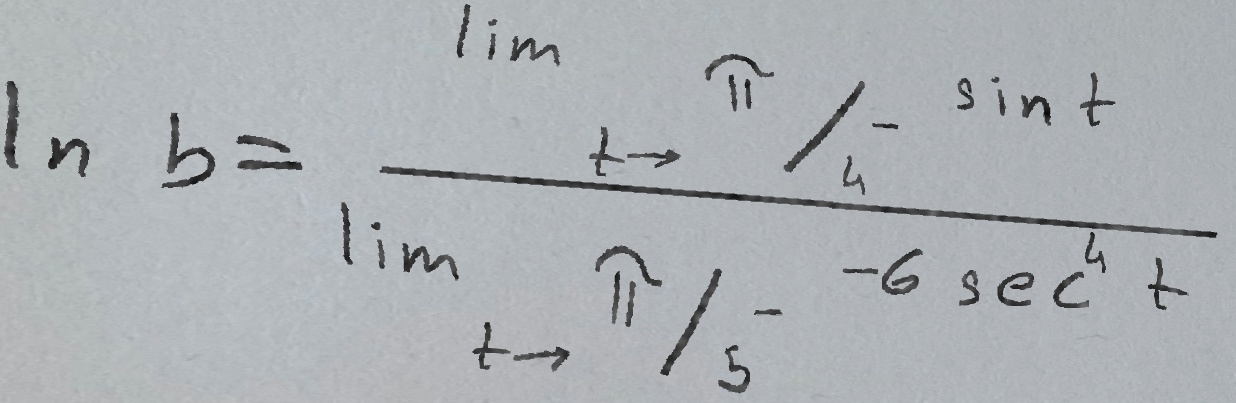 ln b = \frac{\lim_{t \to \pi/4^-} \sin t}{\lim_{t \to \pi/5^-} -6 \sec^4 t}